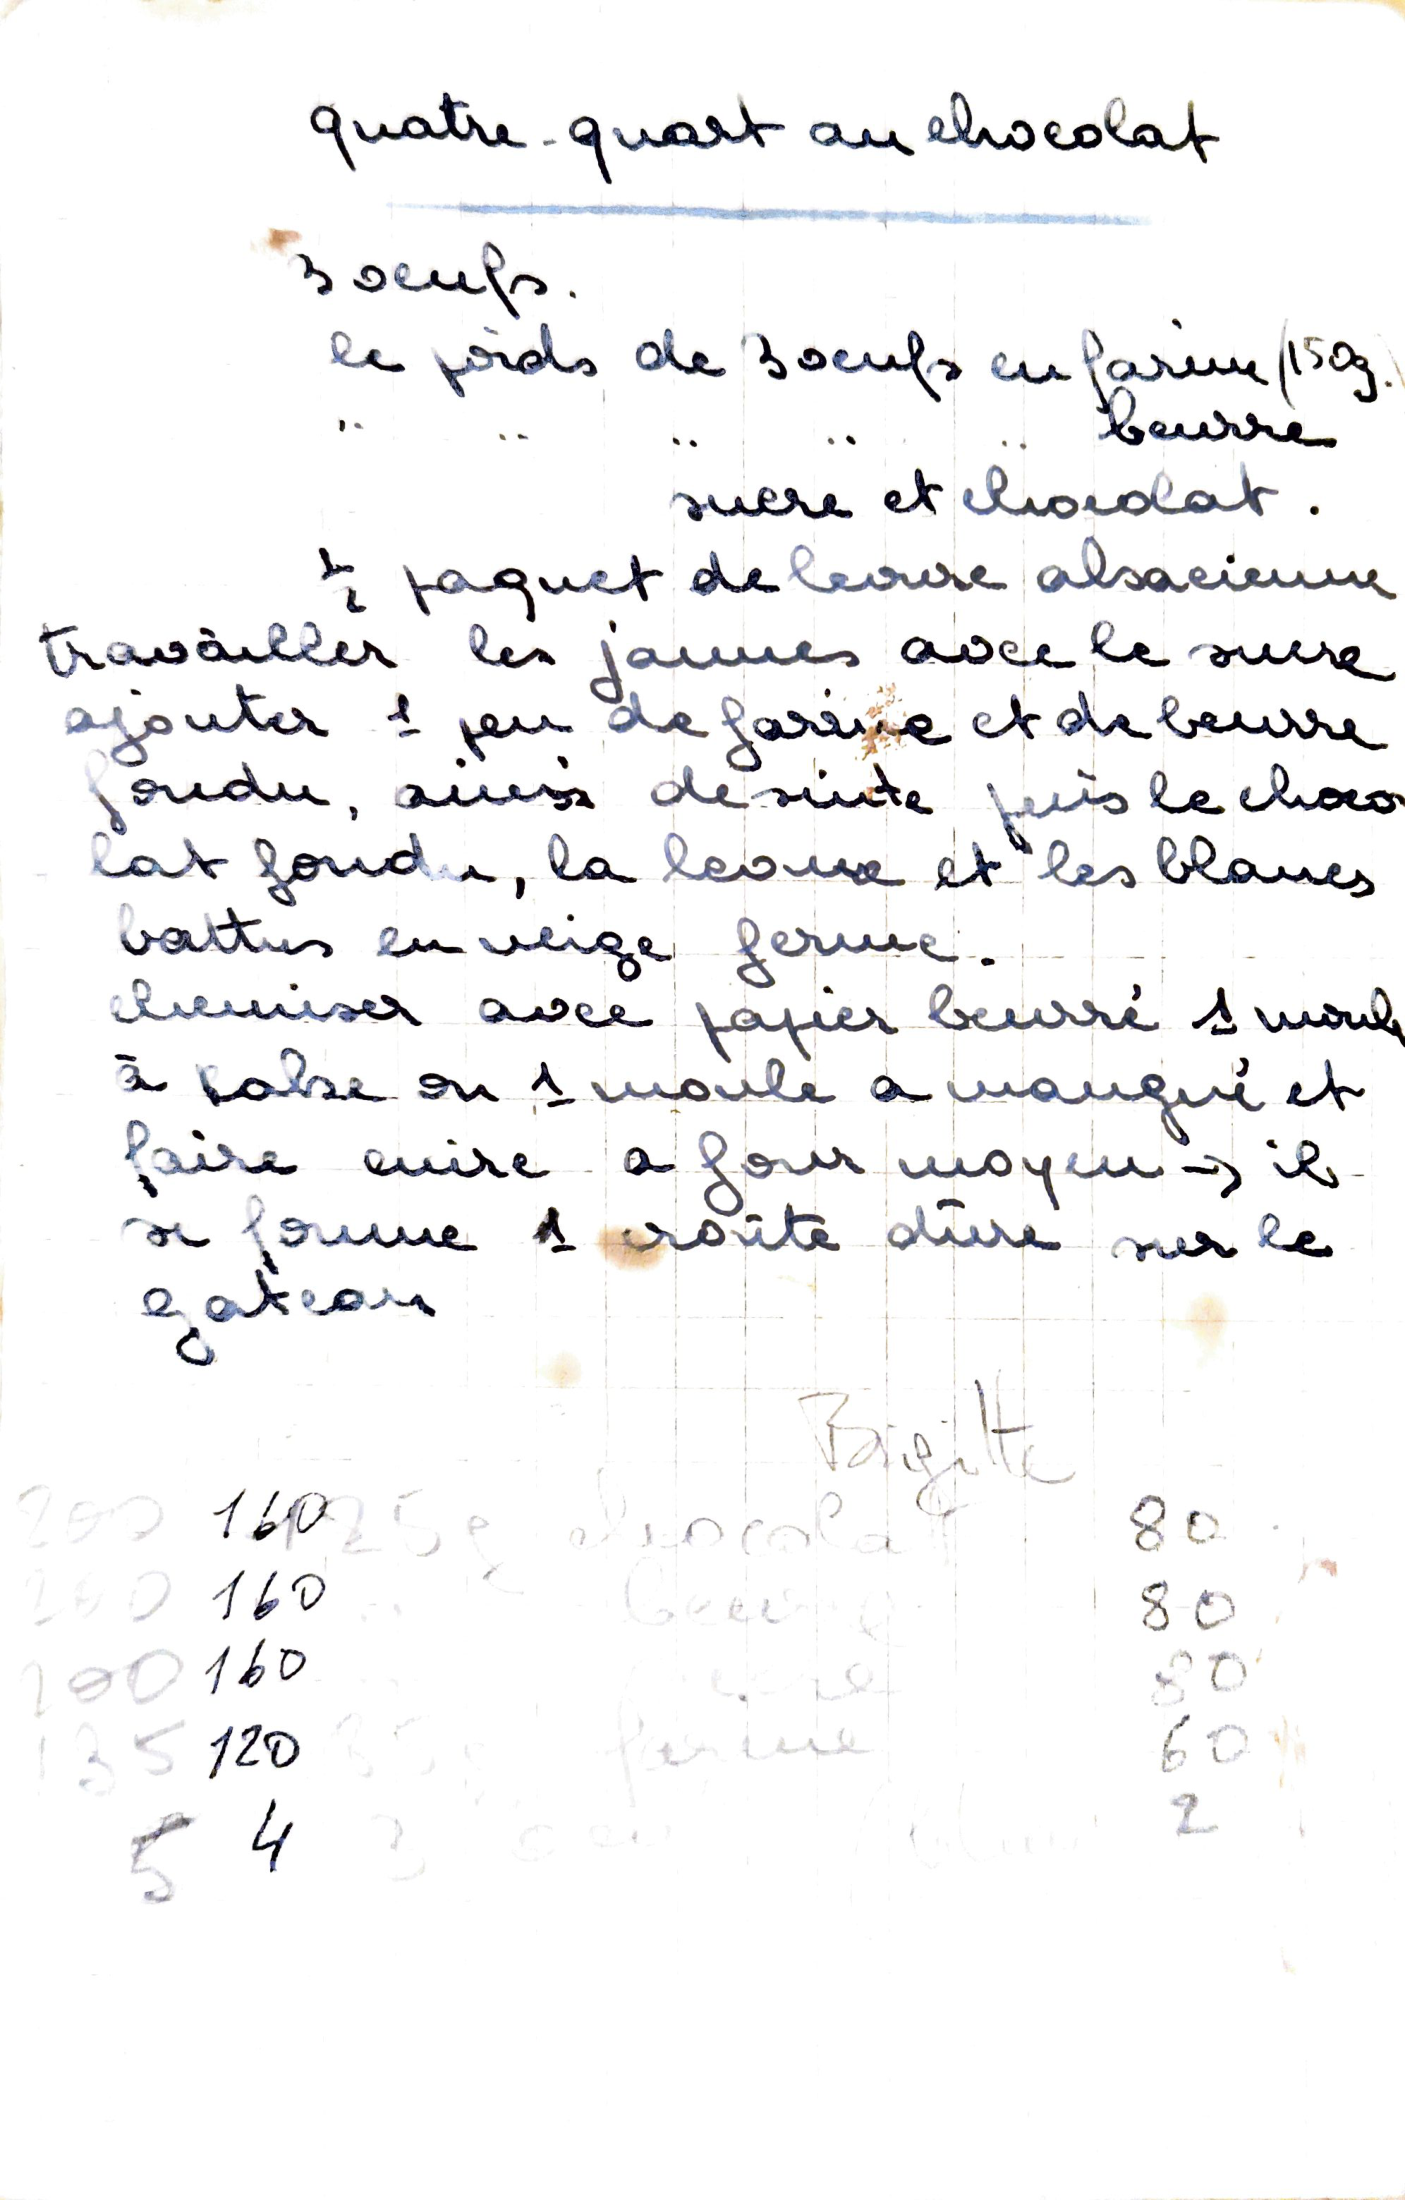 quatre-quart au chocolat
3 oeufs.
le poids de 3 oeufs en farine (150g.)
" " " " " beurre
sucre et chocolat.
1/2 paquet de levure alsacienne
travailler les jaunes avec le sucre
ajouter 1 peu de farine et de beurre
fondu, ainsi de suite puis le choco
lat fondu, la levure et les blancs
battus en neige ferme.
chemiser avec papier beurré 1 moule
à cake ou 1 moule a manqué et
faire cuire a four moyen → il
se forme 1 croûte dûre sur le
gateau
Brigitte
200 160 125g chocolat 80
200 160 " beurre 80
200 160 " sucre 80
135 120 35g farine 60
5 4 3 2